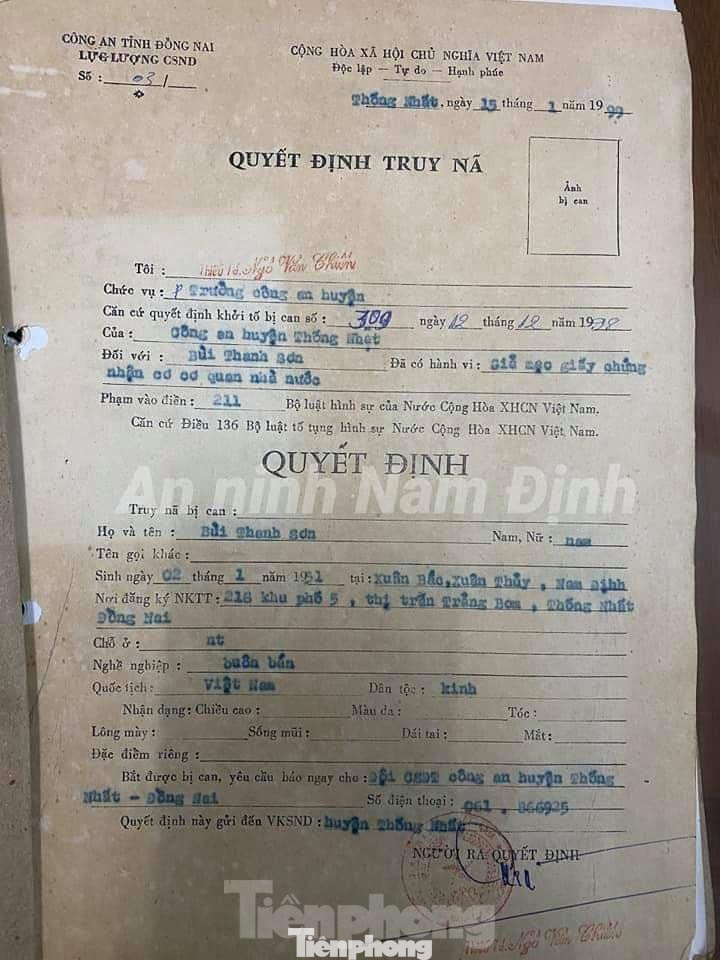 CÔNG AN TỈNH ĐỒNG NAI
LỰC LƯỢNG CSND
Số : 031
CỘNG HÒA XÃ HỘI CHỦ NGHĨA VIỆT NAM
Độc lập — Tự do — Hạnh phúc
Thống Nhất, ngày 15 tháng 1 năm 1999
QUYẾT ĐỊNH TRUY NÃ
Ảnh
bị can
Tôi : Thiếu tá. Ngô Văn Chiến
Chức vụ : P Trưởng công an huyện
Căn cứ quyết định khởi tố bị can số : 309 ngày 12 tháng 12 năm 1998
Của : Công an huyện Thống Nhất
Đối với : Bùi Thanh Sơn Đã có hành vi : Giả mạo giấy chứng
nhận cơ cơ quan nhà nước
Phạm vào điền : 211 Bộ luật hình sự của Nước Cộng Hòa XHCN Việt Nam.
Căn cứ Điều 136 Bộ luật tố tụng hình sự Nước Cộng Hòa XHCN Việt Nam.
QUYẾT ĐỊNH
An ninh Nam Định
Truy nã bị can :
Họ và tên : Bùi Thanh Sơn Nam, Nữ : nam
Tên gọi khác :
Sinh ngày 02 tháng 1 năm 1951 tại : Xuân Bắc, Xuân Thủy, Nam Định
Nơi đăng ký NKTT : 218 khu phố 5, thị trấn Trảng Bom, Thống Nhất
Đồng Nai
Chỗ ở : nt
Nghề nghiệp : buôn bán
Quốc tịch : Việt Nam Dân tộc : kinh
Nhận dạng : Chiều cao : Màu da : Tóc :
Lông mày : Sống mũi : Dái tai : Mắt :
Đặc điểm riêng :
Bắt được bị can, yêu cầu báo ngay cho : Đội CSĐT công an huyện Thống
Nhất – Đồng Nai Số điện thoại : 061. 866925
Quyết định này gửi đến VKSND : huyện Thống Nhất
NGƯỜI RA QUYẾT ĐỊNH
Tiền phong
Tiền phong
Thiếu tá. Ngô Văn Chiến